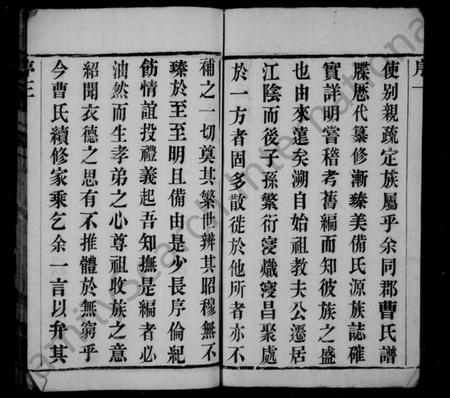 序一
使别親疏定族屬乎余同郡曹氏譜
牒歷代纂修漸臻美備氏源族誌確
實詳明嘗稽考舊編而知彼族之盛
也由來遠矣溯自始祖教夫公遷居
江陰而後子孫繁衍寖熾寖昌聚處
於一方者固多散徙於他所者亦不
補之一切奠其繫世辨其昭穆無不
臻於至至明且備由是少長序倫紀
飭情誼投禮義起吾知撫是編者必
油然而生孝弟之心尊祖收族之意
紹聞衣德之思有不推體於無窮乎
今曹氏續修家乘乞余一言以弁其
序三
familysearch international